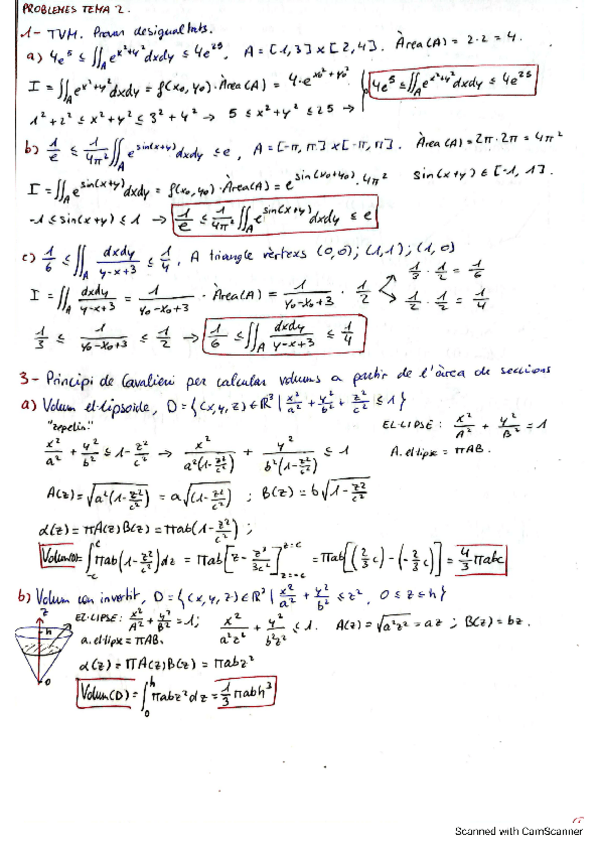 PROBLEMES TEMA 2.
1- TVM. Provar desigualtats.
a) 4e⁵ ≤ ∬_A e^(x²+y²) dxdy ≤ 4e²⁵, A = [1,3] x [2,4]. Àrea(A) = 2·2 = 4.
I = ∬_A e^(x²+y²) dxdy = f(x₀,y₀)·Àrea(A) = 4·e^(x₀²+y₀²)
4e⁵ ≤ ∬_A e^(x²+y²) dxdy ≤ 4e²⁵
1²+2² ≤ x²+y² ≤ 3²+4² → 5 ≤ x²+y² ≤ 25 →
b) 1/e ≤ 1/4π² ∬_A e^(sin(x+y)) dxdy ≤ e, A = [-π,π] x [-π,π]. Àrea(A) = 2π·2π = 4π²
I = ∬_A e^(sin(x+y)) dxdy = f(x₀,y₀)·Àrea(A) = e^(sin(x₀+y₀))·4π² sin(x+y) ∈ [-1,1].
-1 ≤ sin(x+y) ≤ 1 → 1/e ≤ 1/4π² ∬_A e^(sin(x+y)) dxdy ≤ e
c) 1/6 ≤ ∬_A dxdy/(y-x+3) ≤ 1/4, A triangle vèrtexs (0,0); (1,1); (1,0)
I = ∬_A dxdy/(y-x+3) = 1/(y₀-x₀+3) · Àrea(A) = 1/(y₀-x₀+3) · 1/2
1/3 · 1/2 = 1/6
1/2 · 1/2 = 1/4
1/3 ≤ 1/(y₀-x₀+3) ≤ 1/2 → 1/6 ≤ ∬_A dxdy/(y-x+3) ≤ 1/4
3- Principi de Cavalieri per calcular volums a partir de l'àrea de seccions
a) Volum el·lipsoide, D = {(x,y,z) ∈ ℝ³ | x²/a² + y²/b² + z²/c² ≤ 1}
"zepelin"
EL·LIPSE: x²/A² + y²/B² = 1
x²/a² + y²/b² ≤ 1 - z²/c² → x²/(a²(1-z²/c²)) + y²/(b²(1-z²/c²)) ≤ 1
A. el·lipse = πAB.
A(z) = √(a²(1-z²/c²)) = a√(1-z²/c²) ; B(z) = b√(1-z²/c²)
α(z) = πA(z)B(z) = πab(1-z²/c²) ;
= ∫_-c^c πab(1-z²/c²)dz = πab[z - z³/3c²]_z=-c^z=c = πab[(2/3 c) - (-2/3 c)] = 4/3 πabc
b) Volum con invertit, D = {(x,y,z) ∈ ℝ³ | x²/a² + y²/b² ≤ z², 0 ≤ z ≤ h}
z
h
0
EL·LIPSE: x²/A² + y²/B² = 1; x²/a²z² + y²/b²z² ≤ 1. A(z) = √(a²z²) = az ; B(z) = bz.
a. el·lipse = πAB.
α(z) = πA(z)B(z) = πabz²
Volum(D) = ∫_0^h πabz² dz = 1/3 πabh³
Scanned with CamScanner